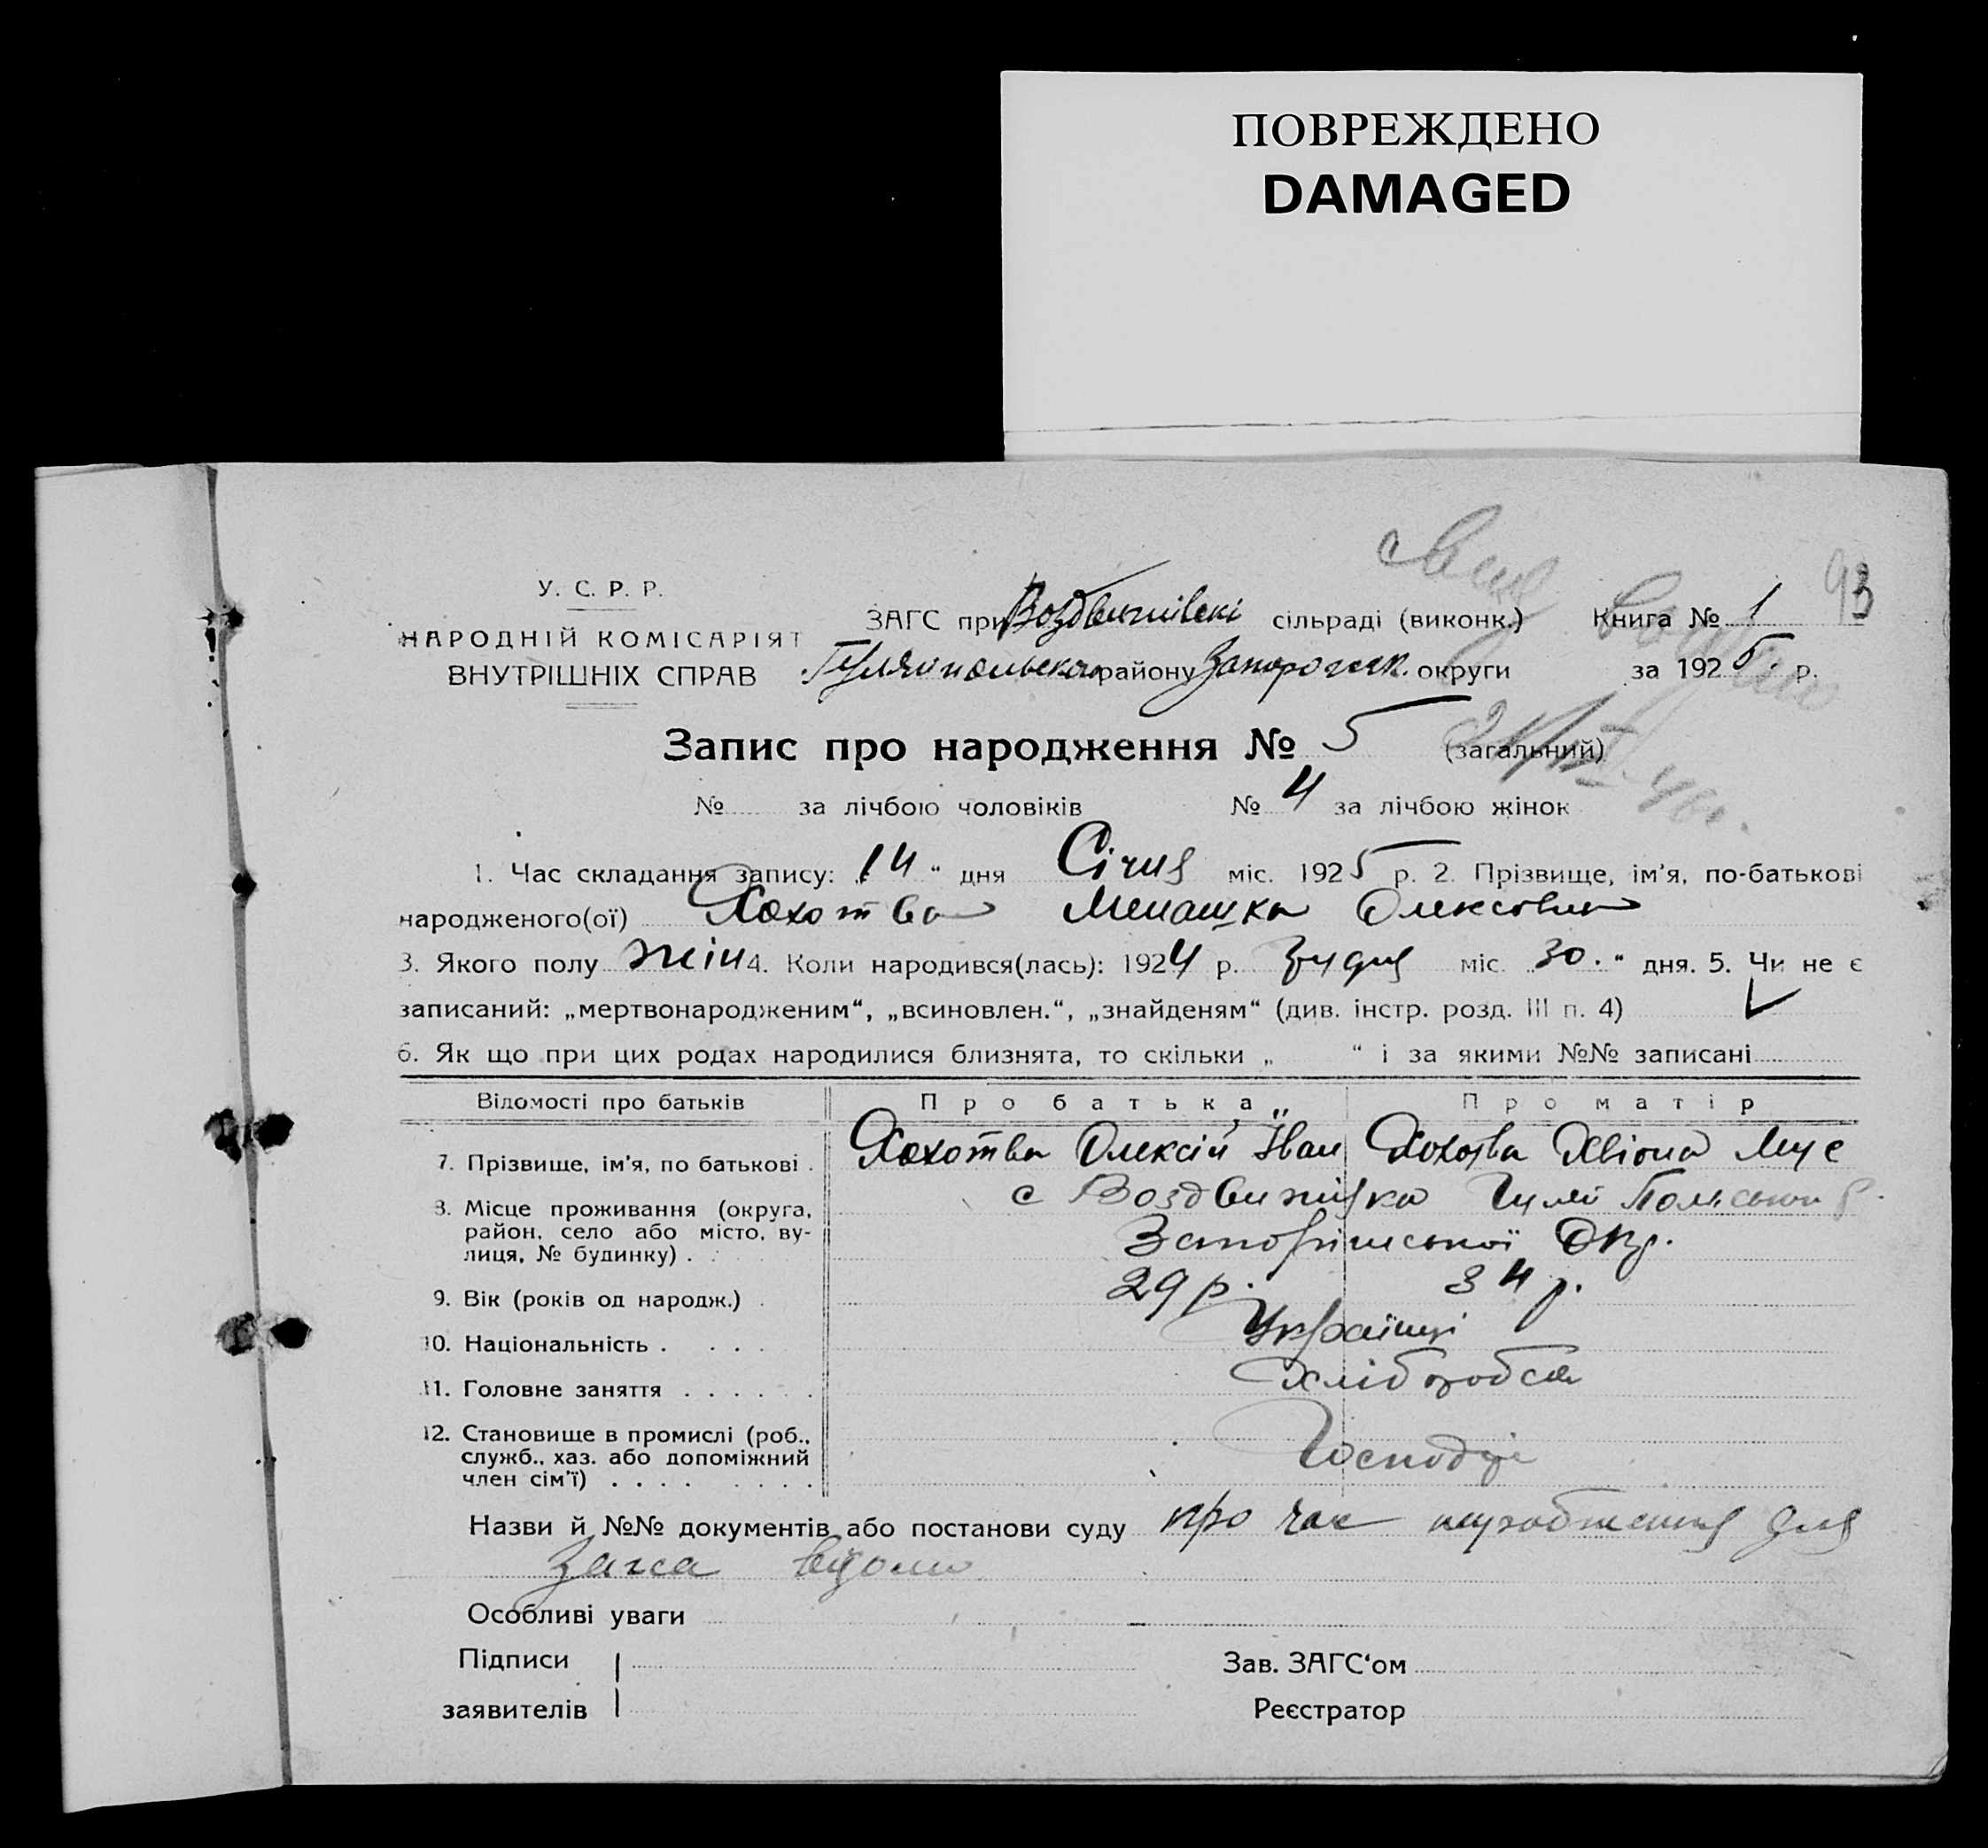 ПОВРЕЖДЕНО
DAMAGED
93
У. С. Р. Р.
НАРОДНІЙ КОМІСАРІЯТ
ВНУТРІШНІХ СПРАВ
ЗАГС при Воздвижівскі сільраді (виконк.) Книга № 1
Гуляйпольськ району Запорожск. округи за 1925 р.
Запис про народження № 5 (загальний)
№ за лічбою чоловіків № 4 за лічбою жінок
1. Час складання запису: „14“ дня Січня міс. 1925 р. 2. Прізвище, ім'я, по-батькові
народженого(ої) Хохотва Мелашка Олексівна
3. Якого полу жін 4. Коли народився(лась): 1924 р. Грудня міс. 30. “ дня. 5. Чи не є
записаний: „мертвонародженим“, „всиновлен.“, „знайденям“ (див. інстр. розд. III п. 4)
6. Як що при цих родах народилися близнята, то скільки „ “ і за якими №№ записані
Відомості про батьків Про батька Про матір
7. Прізвище, ім'я, по батькові . Хохотва Олексій Іван Хохотва Хвіона Мус
8. Місце проживання (округа, с Воздвижівка Гуляй Польського р.
район, село або місто, ву- Запоріжської Окр.
лиця, № будинку) .
9. Вік (років од народж.) . 29 р. 34 р.
10. Національність . . . . Українці
11. Головне заняття . . . . . . Хлібороб
12. Становище в промислі (роб.,
служб., хаз. або допоміжний Господар
член сім'ї) . . . . . . . .
Назви й №№ документів або постанови суду про час народження для
Загса відомо
Особливі уваги
Підписи Зав. ЗАГС'ом
заявителів Реєстратор